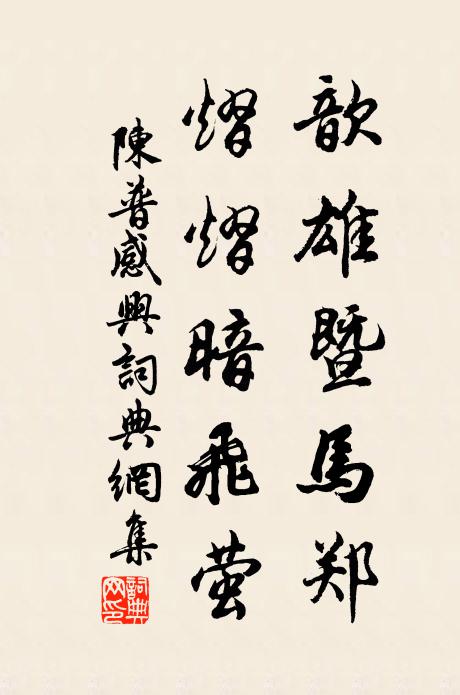 歆雄暨馬郑
熠熠暗飛萤
陳普感興詞典網集
詞典网印